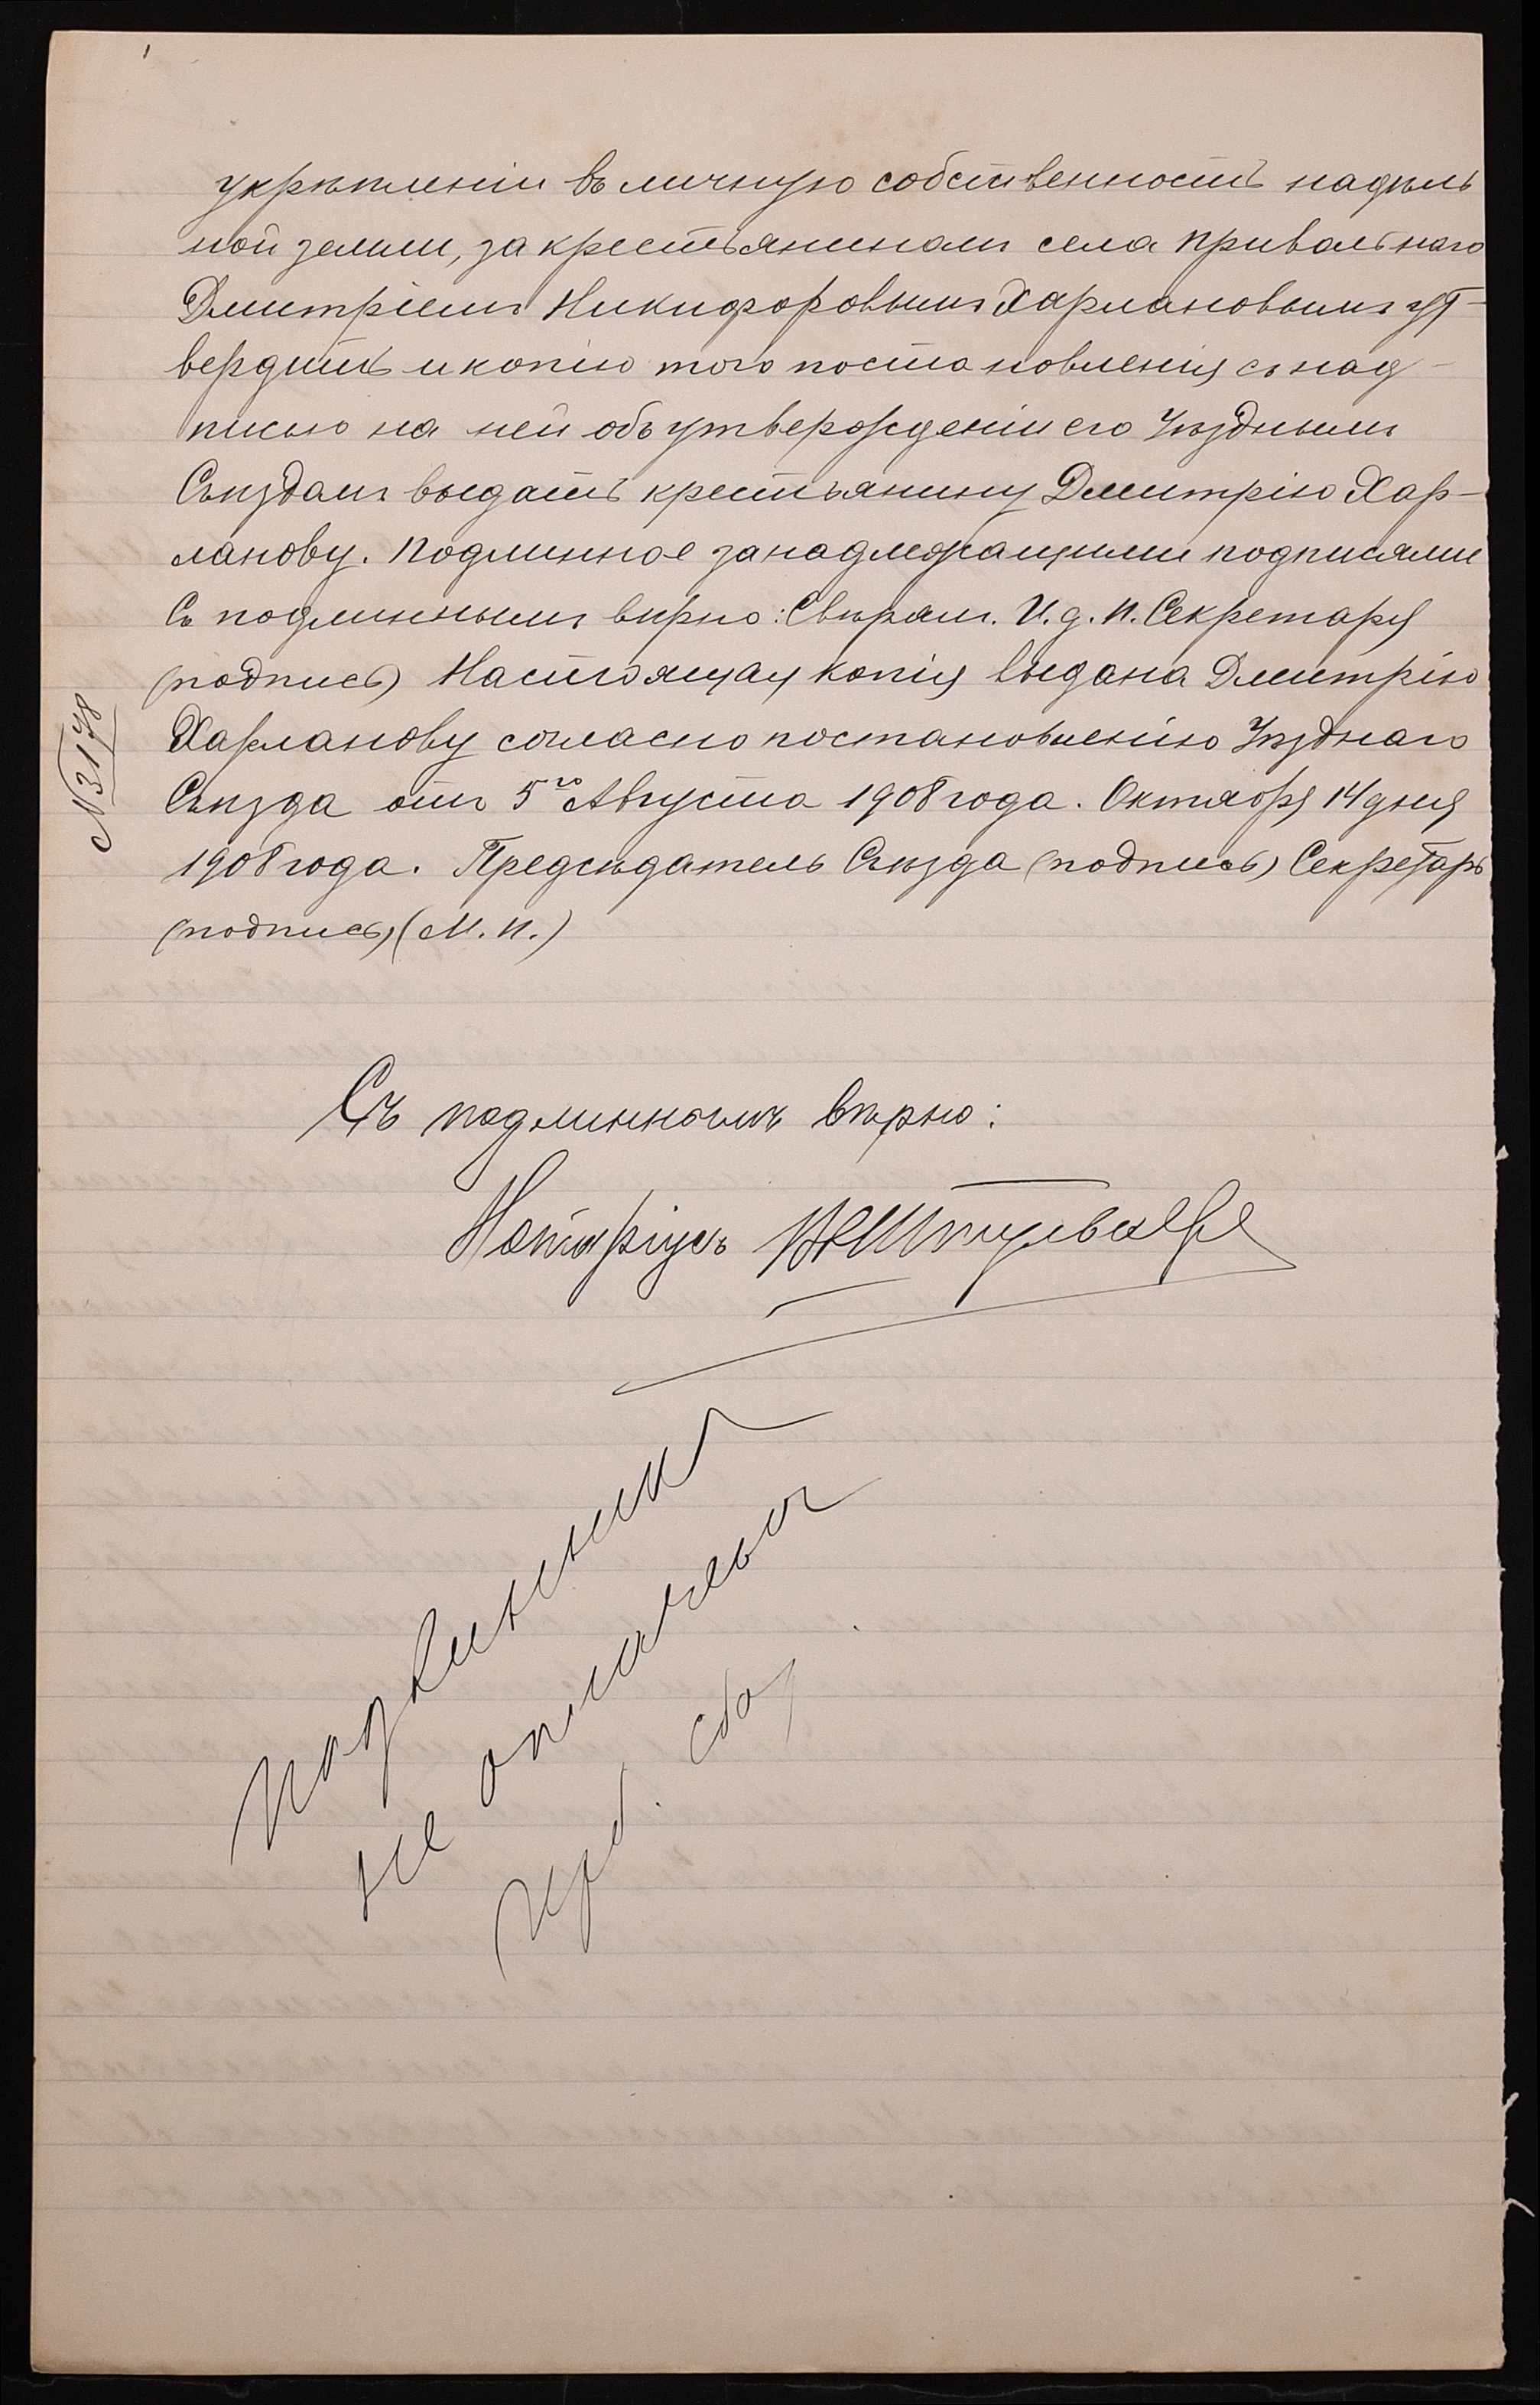 укрѣпленіи въ личную собственность надѣль
ной земли, за крестьяниномъ села Привольнаго
Дмитріемъ Никифоровымъ Харлановымъ ут-
вердить и копію того постановленія съ над-
писью на ней объ утвержденіи его Уѣзднымъ
Съѣздомъ выдать крестьянину Дмитрію Хар-
ланову. Подлинное за надлежащими подписями
Съ подлиннымъ вѣрно: Свѣрялъ. И. д. П. Секретаря
(подпись) Настоящая копія выдана Дмитрію
Харланову согласно постановленію Уѣзднаго
Съѣзда отъ 5го Августа 1908 года. Октября 14 дня
1908 года. Предсѣдатель Съѣзда (подпись) Секретарь
(подпись) (М. П.)
№ 3178
Съ подлиннымъ вѣрно:
Нотаріусъ
подлинник
не
сбор